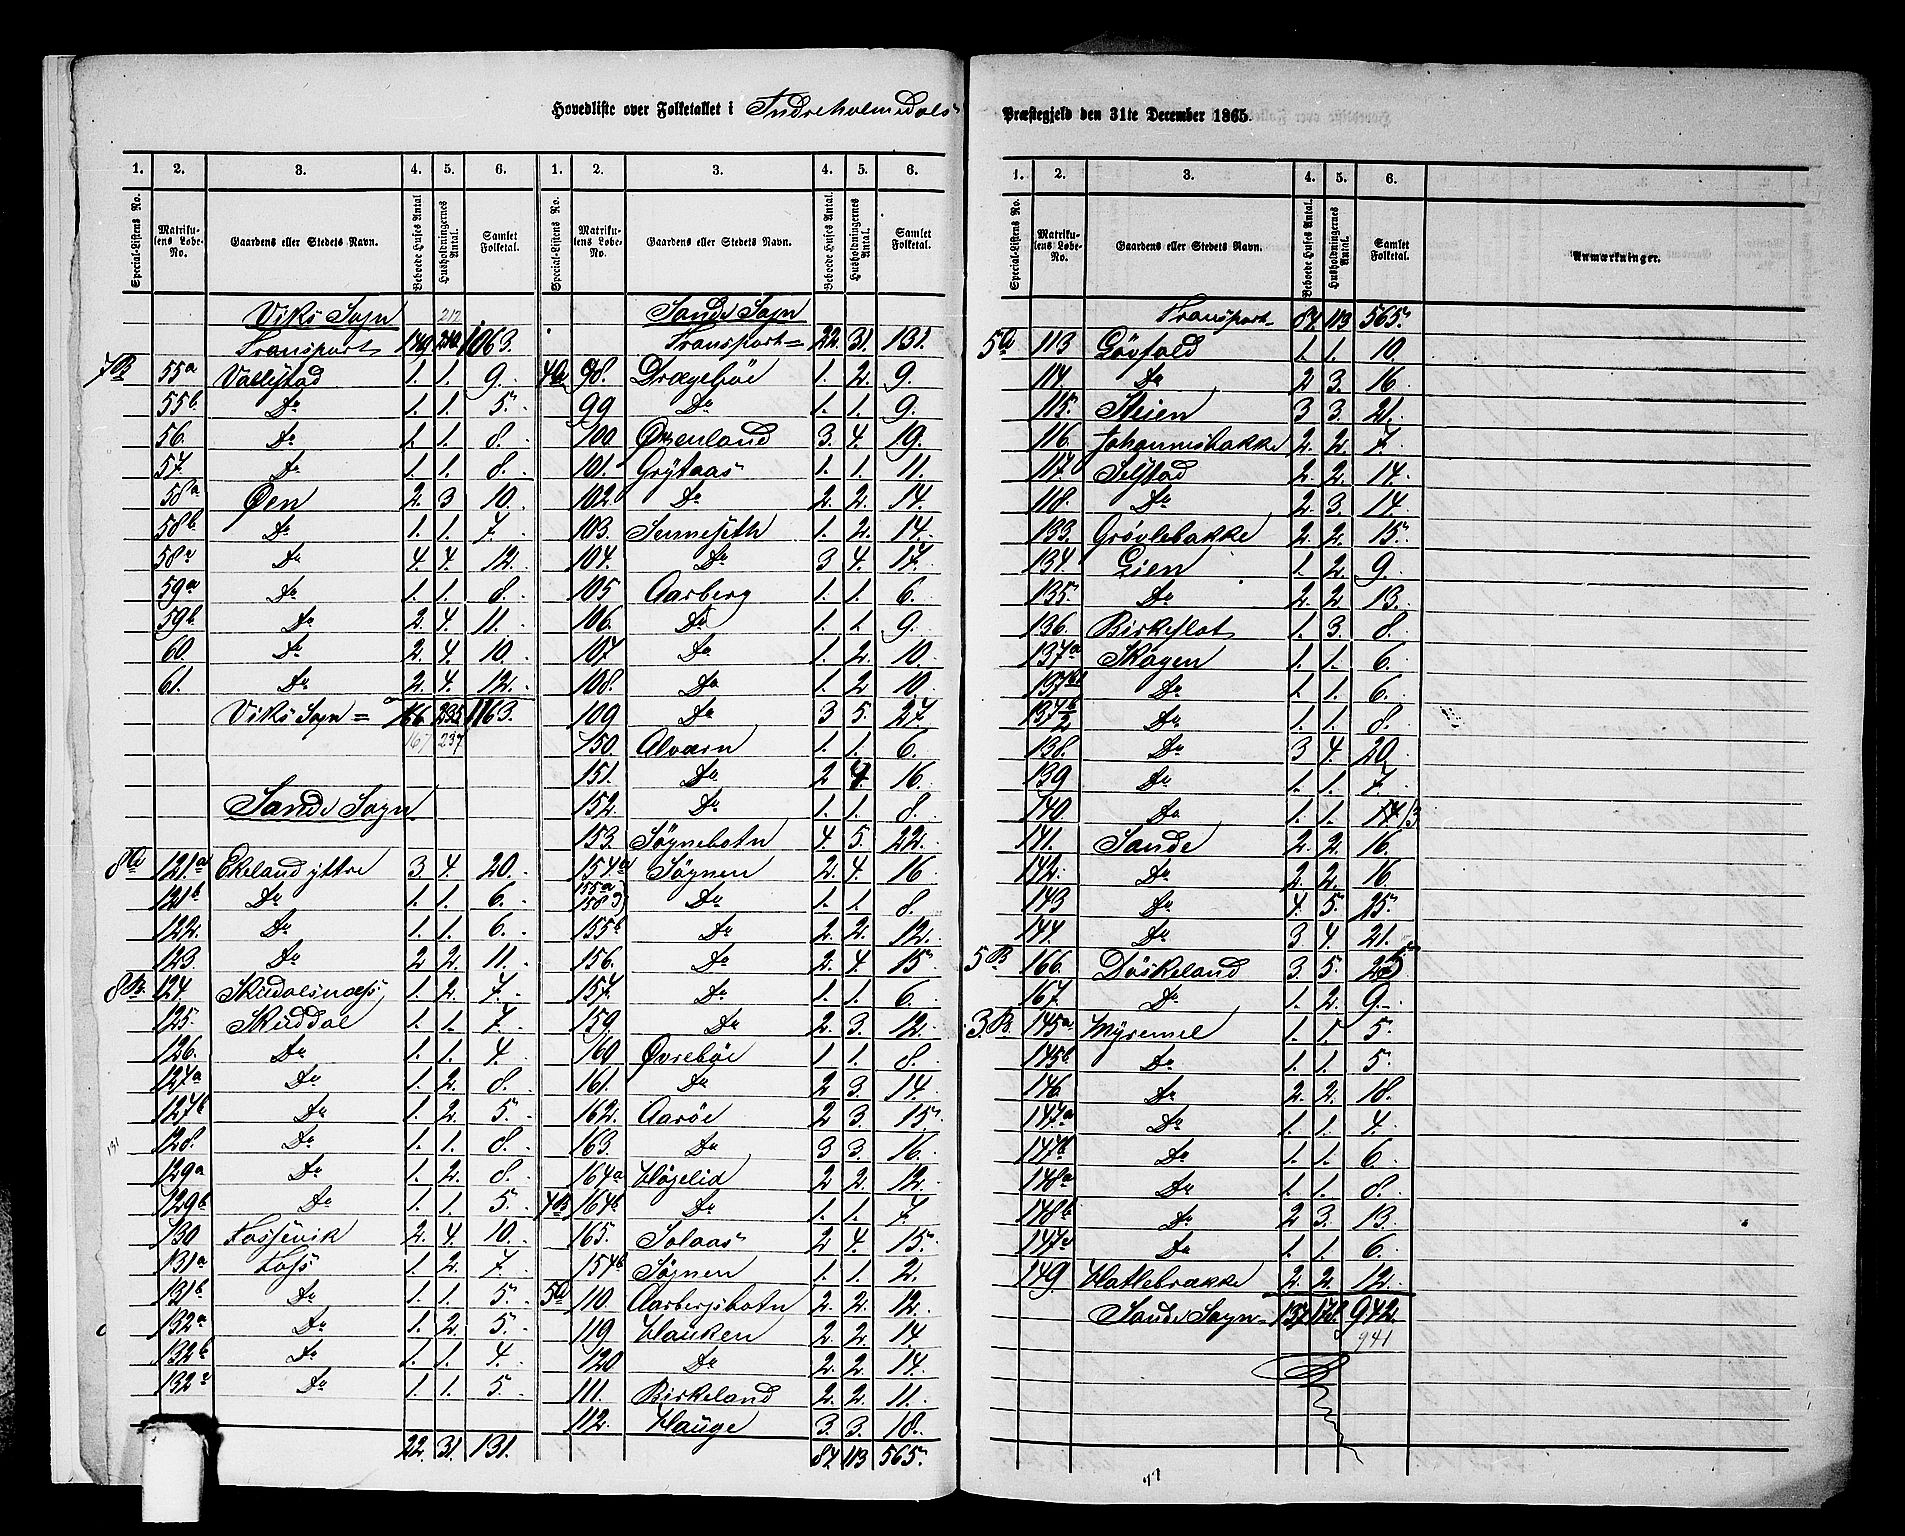 Hovedliste over Folketallet i Indreholmedals
1. 2. 3. 4. 5. 6. 1. 2. 3. 4. 5. 6.
Special-Listens No. Matrikulens Løbe-No. Gaardens eller Stedets Navn. Beboede Huses Antal. Husholdningernes Antal. Samlet Folketal. Special-Listens No. Matrikulens Løbe-No. Gaardens eller Stedets Navn. Beboede Huses Antal. Husholdningernes Antal. Samlet Folketal.
Viks Sogn 212
Transport 149 210 1063.
7B 55a Vallestad 1. 1. 9.
55b. Do 1. 1. 5.
56. Do 1. 1. 8.
57. Do 1. 1. 8.
58a Øen 2. 3 10.
58b Do 1. 1. 7.
58c Do 4. 4. 12.
59a Do 1. 1. 8.
59b Do 2. 4. 11.
60. Do 2. 4. 10.
61. Do 2. 4. 12.
Viks Sogn = 166 235 1163.
167 237
Sande Sogn.
8a 121a Ekeland yttre 3. 4. 20.
121b Do 1. 1. 6.
122. Do 1. 1. 6.
123. Do 2 2. 11.
8B 124. Skudalsnæss 1. 2. 7.
125. Skuddal 1. 1. 7.
126. Do 1. 1. 4.
127a Do 1. 2. 8.
127b Do 1. 2. 5.
131
128. Do 1. 1. 8.
129a Do 1. 2. 8.
129b Do 1. 1. 5.
130 Fossevik 2. 4. 10.
131a Foss 1. 2. 7.
131b Do 1. 1. 5.
132a Do 1. 2. 5.
132b Do 1. 1. 4.
132c Do 1. 1. 5.
22. 31. 131.
Sande Sogn
Transport = 22. 31. 131.
4a 98. Drægebøe 1. 2. 9.
99 Do 1. 1. 9.
100 Øxenland 3. 4. 19.
101. Grytaas 1. 1. 11.
102. Do 2. 2. 14.
103. Senneseth 1. 2. 14.
104. Do 3 4. 17.
105 Aarberg 1. 1. 6.
106. Do 1. 1. 9.
107. Do 1. 2. 10.
108. Do 1. 2. 10.
109 Do 3 5. 27.
150. Alværn 1. 1. 6.
151. Do 2 4. 16.
152. Do 1. 1. 8.
153. Søgnebotn 4. 5. 22.
154a Søgnen 2. 4. 16
155a 158 Do 1. 1. 8.
155b Do 2. 2. 12.
156. Do 2. 4. 15
157. Do 1. 1. 6.
159. Do 2. 3. 12.
160 Øvrebøe 1. 1. 8.
161. Do 2 3. 14.
162. Aarøe 2 3. 15.
163. Do 3 3. 16.
164a Høgelid 2 2. 12.
4B 164b Do 1. 1. 7.
165. Solaas 2 4. 15.
154b Søgnen 1. 1. 2.
5a 110. Aarbergsbotn 2. 2. 12.
119 Hauken 2. 2. 14.
120 Do 2. 2. 14.
111. Birkeland 2. 2. 11.
112. Hauge 3. 3. 18.
84 113 565.
Præstegjeld den 31te December 1865.
1. 2. 3. 4. 5. 6.
Special-Listens No. Matrikulens Løbe-No. Gaardens eller Stedets Navn. Beboede Huses Antal. Husholdningernes Antal. Samlet Folketal. Anmærkninger.
Transport 84 113 565.
5a 113 Gövfald 1. 1. 10.
114. Do 2 3. 16.
115. Steien 3 3. 21.
116. Johannesbakke 2. 2. 7.
117. Selstad 2. 2. 14.
118. Do 2. 3. 14.
133. Grøvlebakke 2. 2. 15.
134. Lien 1. 2. 9.
135. Do 2. 2. 13.
136. Birkeflot 1. 3. 8.
137a Skogen 1. 1. 6.
137b1 Do 1. 1. 6.
137b2 Do 1. 1. 8.
138. Do 3 4. 20.
139 Do 1. 1. 7.
140. Do 1. 1. 14 13
141. Sande 2. 2. 16.
142. Do 2. 2. 16.
143 Do 4. 5. 25.
144. Do 3 4. 21.
5B 166. Döskeland 3. 5. 25
167. Do 1. 2. 9.
3B. 145a Myremel 1. 1. 5.
145b Do 1. 1. 5.
146. Do 2. 2. 18.
147a Do 1. 1. 4.
147b Do 1. 1. 6.
148a Do 1. 1. 8.
148b Do 2 3. 13.
147c Do 1. 1. 6.
149. Hatlebrække 2. 2. 12.
Sande Sogn = 137 178 942.
941